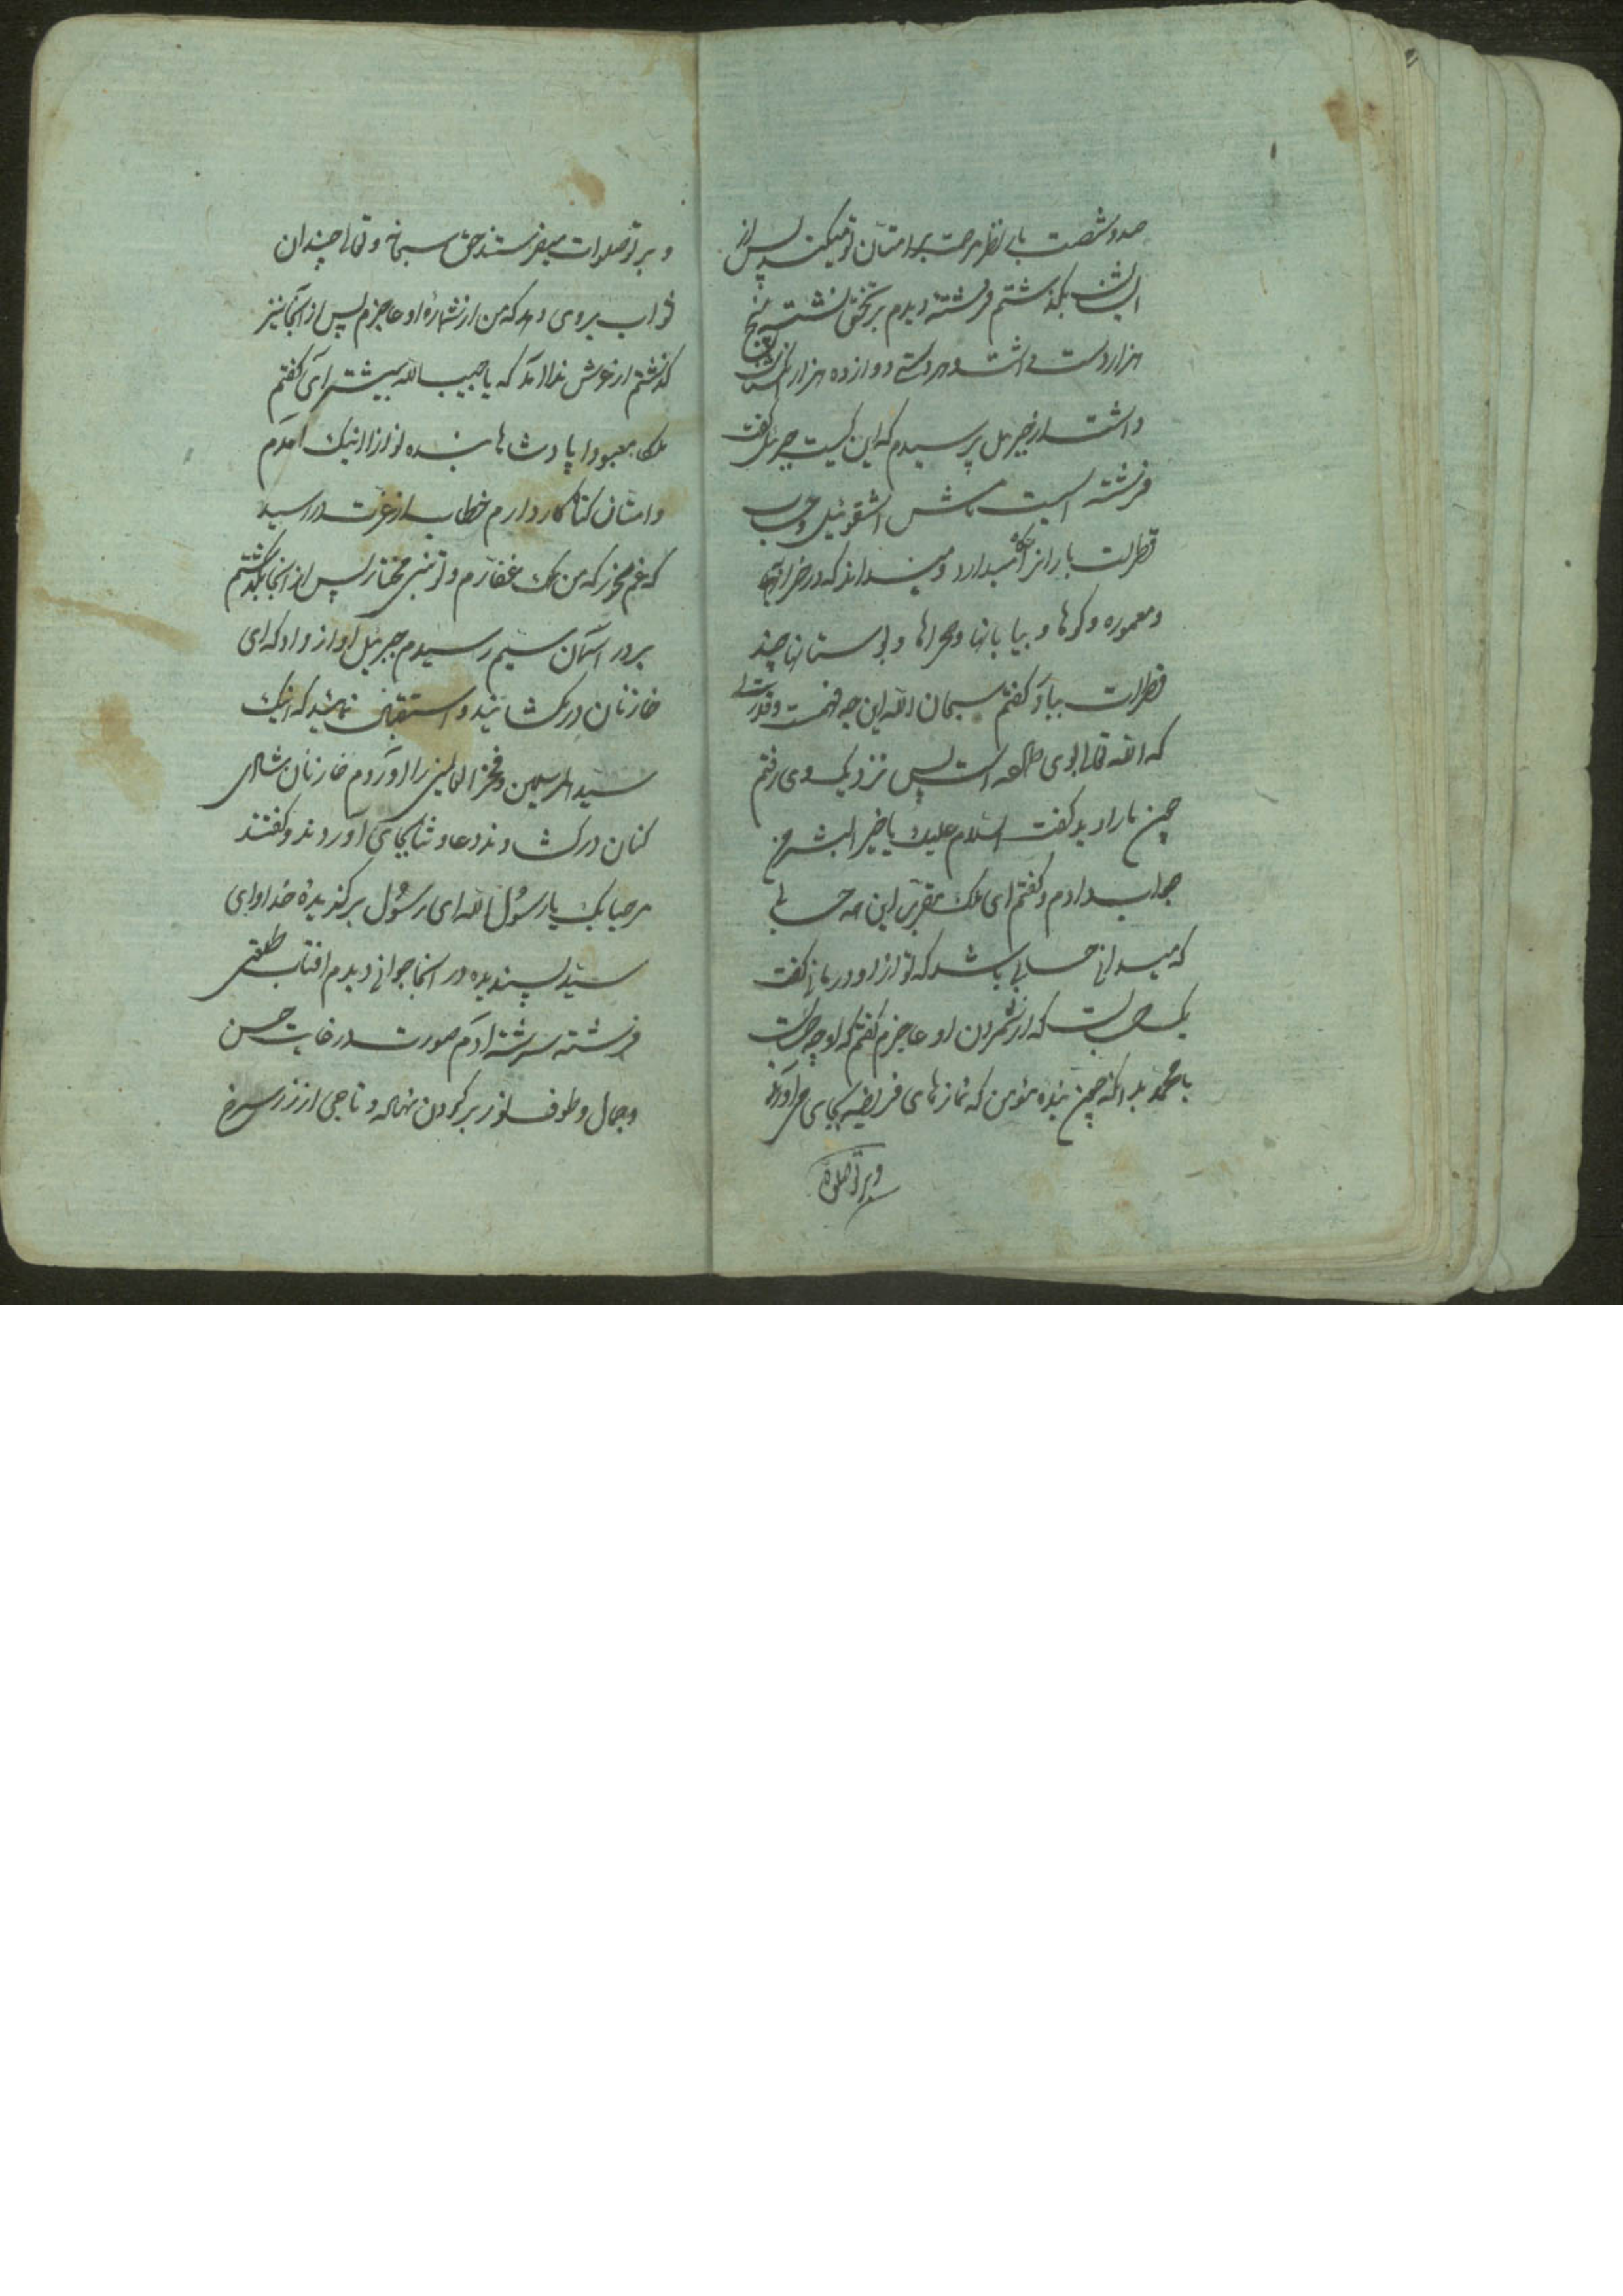 صدوشصت بار نظر رحمت بر امتان تو میکند پس از
ایشان بگذشتم فرشته دیدم بر تختی نشسته پنج
هزار دست داشت و هر دستی دوازده هزار انگشتان
داشت از جبرئیل پرسیدم که این کیست جبرئیل گفت
فرشته ایست نامش اشقوئیل و حساب
قطرات بارانرا نگاه میدارد و میداند که در خرابها
و معموره و کوهها و بیابانها و صحراها و بوستانها چند
قطرات بیاد گفتم سبحان الله این چه فهمست و قدرتی
که الله تعالی بوی داده است پس نزدیک وی رفتم
چون مارا دید گفت السلام علیک یا خیر البشر من
جواب دادم و گفتم ای ملک مقرب این همه حسابی
که میدانی حسابی باشد که تو ازاو در مانی گفت
یک حسابست که از شمردن او عاجزم گفتم که او چه حسابست
یا محمد بدانکه چون بنده مؤمن که نمازهای فریضه بجای می آورند
وبر تو صلوة
و بر تو صلوات میفرستند حق سبحانه و تعالی چندان
ثواب بروی دهد که من از شماره او عاجزم پس از آنجا نیز
گذشتم از عرش ندا آمد که یا حبیب الله پیشتر آی گفتم
ملکا معبودا پادشاها بنده نوازا اینک آمدم
و امتان گناهکار دارم خطاب از عزت در رسید
که غم مخور که من ملک غفارم و تو نبی مختار پس از آنجا بگذشتم
بر در آسمان سیم رسیدم جبرئیل آواز داد که ای
خازنان در بگشائید و استقبال نمائید که اینک
سید المرسلین و فخر العالمین را آوردم خازنان شادی
کنان در گشادند و دعا و ثنا بجای آوردند و گفتند
مرحبا بک یا رسول الله ای رسول برگزیدهٔ خدا وای
سید پسندیده در آنجا جوانی دیدم آفتاب طلعتی
فرشته سرشته آدم صورت در غایت حسن
و جمال و طوف از نور بر گردن نهاده و تاجی از زر سرخ